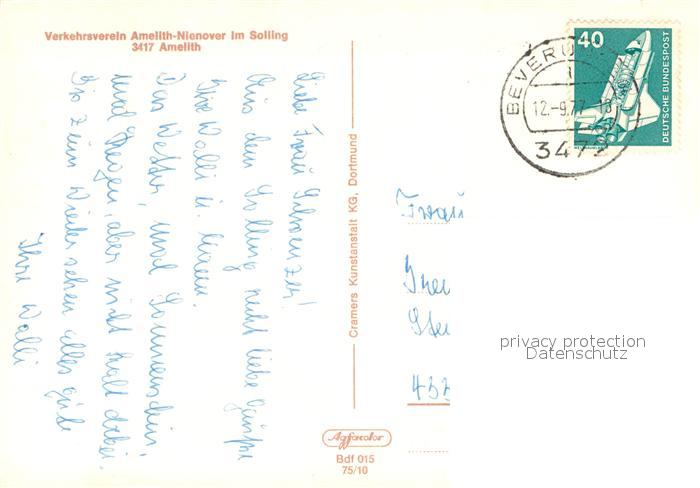 Verkehrsverein Amelith-Nienover im Solling
3417 Amelith
Liebe Frau
Aus dem Solling recht liebe Grüße
Ihre Walli u. Mann.
Das Wetter, mal Sonnenschein,
mal Regen, aber nicht kalt dabei.
Bis zum Wiedersehen alles gute
Ihre Walli
Cramers Kunstanstalt KG, Dortmund
Agfacolor
Bdf 015
75/10
40
DEUTSCHE BUNDESPOST
BEVERU
12.-9.77.-18
3472
Frau
privacy protection
Datenschutz